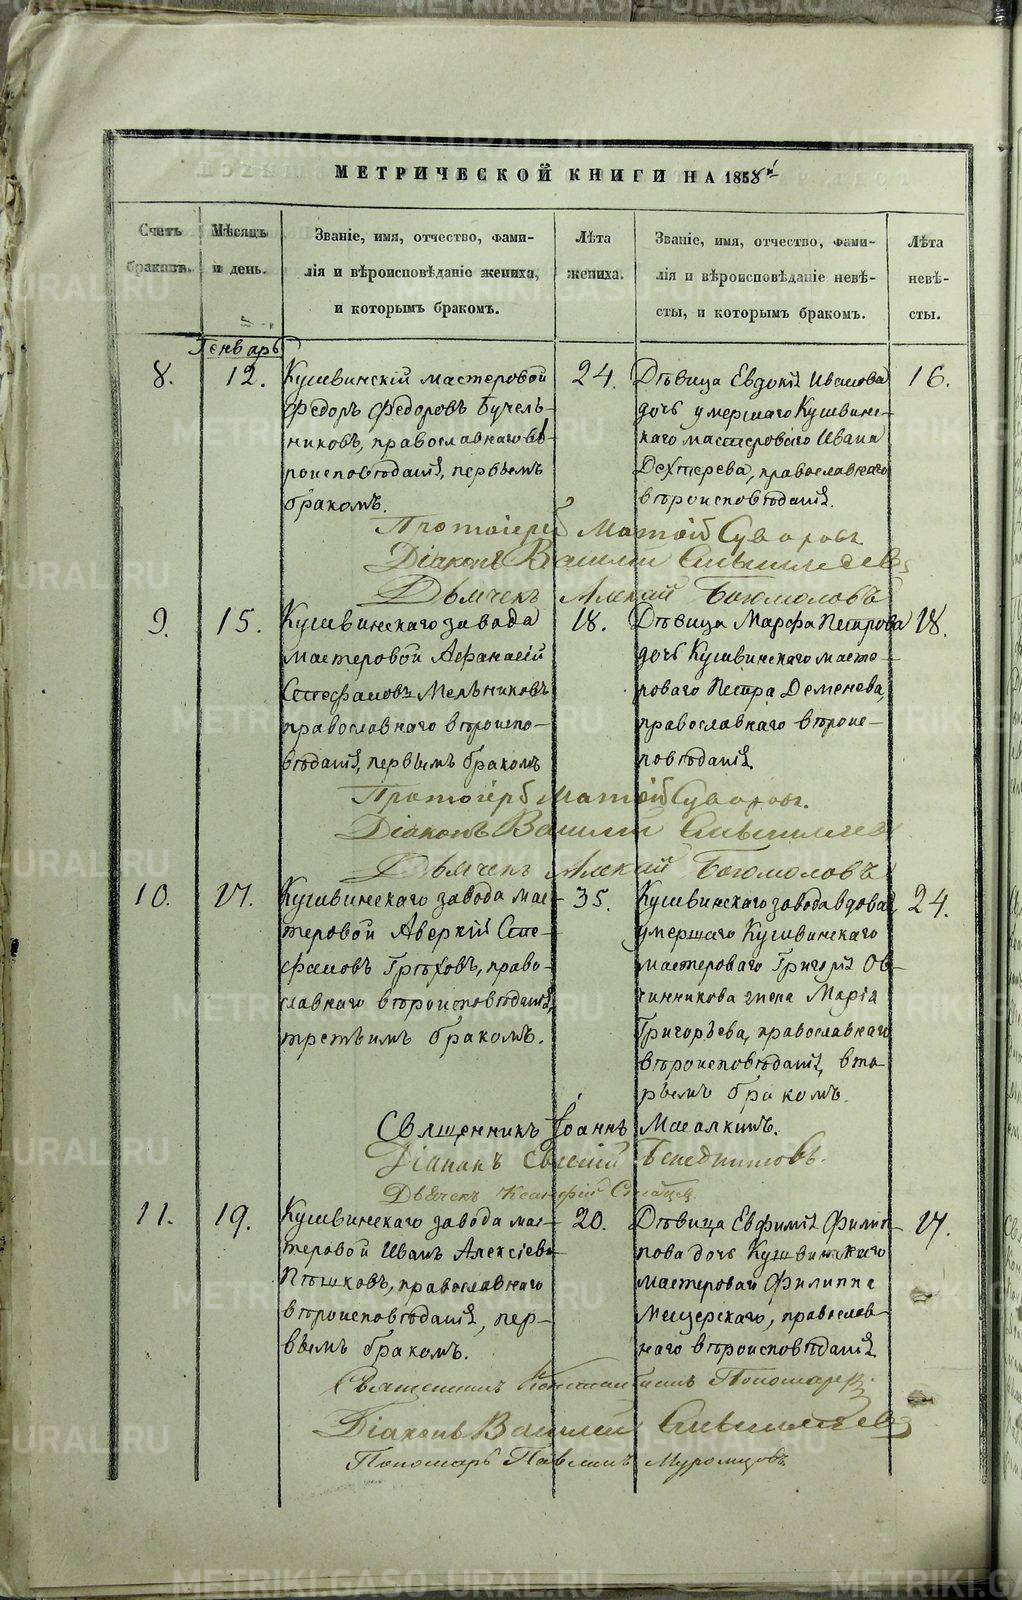 МЕТРИЧЕСКОЙ КНИГИ НА 1858й
Счетъ браковъ.
Мѣсяцъ и день.
Званіе, имя, отчество, фами-
лія и вѣроисповѣданіе жениха,
и которымъ бракомъ.
Лѣта
жениха.
Званіе, имя, отчество, фами-
лія и вѣроисповѣданіе невѣ-
сты, и которымъ бракомъ.
Лѣта
невѣ-
сты.
Генварь
8.
12.
Кушвинскій мастеровой
Федоръ Федоровъ Бучель-
никовъ, православнаго вѣ-
роисповѣданія, первымъ
бракомъ.
24.
Дѣвица Евдокія Иванова
дочь умершаго Кушвинс-
каго мастероваго Ивана
Дехтерева, православнаго
вѣроисповѣданія.
16.
Протоіерей Матѳій Суворовъ
Діаконъ Василій
Дьячекъ Алексій Богомоловъ
9.
15.
Кушвинскаго завода
мастеровой Афанасій
Стефановъ Мельниковъ
православнаго вѣроиспо-
вѣданія, первымъ бракомъ
18.
Дѣвица Марфа Петрова
дочь Кушвинскаго масте-
роваго Петра Деменева,
православнаго вѣроис-
повѣданія.
18.
Протоіерей Матѳій Суворовъ.
Діаконъ Василій
Дьячекъ Алексій Богомоловъ
10.
17.
Кушвинскаго завода мас-
теровой Аверкій Сте-
фановъ Грѣховъ, право-
славнаго вѣроисповѣданія,
третьимъ бракомъ.
35.
Кушвинскаго завода вдова,
умершаго Кушвинскаго
мастероваго Григорія Ов-
чинникова жена Марія
Григорьева, православнаго
вѣроисповѣданія, вто-
рымъ бракомъ.
24.
Священникъ Іоаннъ Масалкинъ.
Діаконъ Евгеній Бенедиктовъ.
Дьячекъ
11.
19.
Кушвинскаго завода мас-
теровой Иванъ Алексѣевъ
Пѣшковъ, православнаго
вѣроисповѣданія, пер-
вымъ бракомъ.
20.
Дѣвица Евфимія Филип-
пова дочь Кушвинскаго
мастероваго Филиппа
Мещерскаго, православ-
наго вѣроисповѣданія
17.
Священникъ Константинъ Пономаревъ
Діаконъ Василій
Пономарь Павлинъ Муромцовъ
METRIKI.GASO-URAL.RU